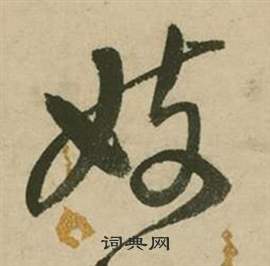 妓
词典网